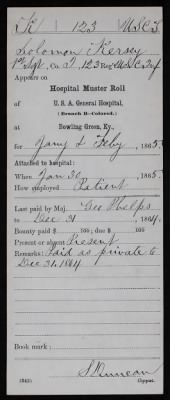 K | 123 | U.S.C.T.
Solomon Kersey
1st Sgt, Co. I, 123 Reg U.S.C. Inf
Appears on
Hospital Muster Roll
of
U. S. A. General Hospital,
(Branch B—Colored,)
Bowling Green, Ky.,
for Jany & Feby, 1865.
Attached to hospital:
When Jan 30, 1865.
How employed Patient
Last paid by Maj. Geo Phelps
to Dec 31, 1864.
Bounty paid $ 100; due $ 100
Present or absent Present
Remarks: Paid as private to
Dec 31, 1864
Book mark:
S Duncan
(343) Copyist.